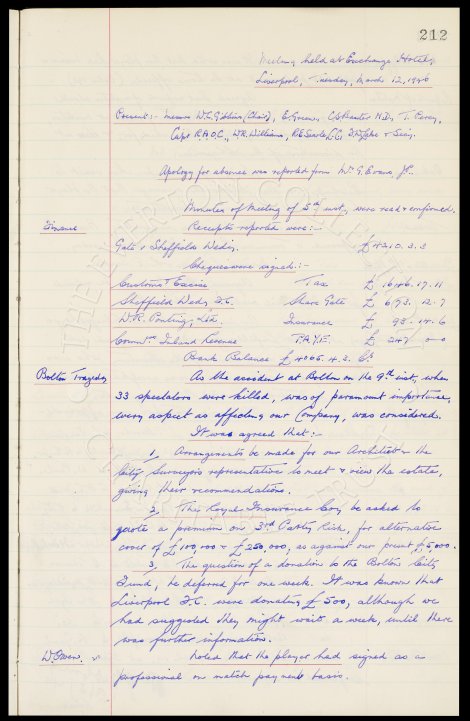 212
Meeting held at Exchange Hotel,
Liverpool, Tuesday, March 12, 1946
Present:- Messrs W.C. Gibbins (Chair), E. Green, C.S. Baxter M.D., T. Percy,
Capt R.A.O.C., W.R. Williams, R.E. Searle, & Secy.
Apology for absence was reported from Mr. G. Evans, J.P.
Minutes of Meeting of 5th inst, were read & confirmed.
Finance
Receipts reported were:-
Gate v Sheffield Weds. £4210.3.3
Cheques were signed:-
Customs & Excise Tax £1646.17.11
Sheffield Weds F.C. Share Gate £693.12.7
W.R. Ponting, Ltd. Insurance £98.14.6
Commrs Inland Revenue P.A.Y.E. £247 0-0
Bank Balance £4065.4.3. Cr
Bolton Tragedy
As the accident at Bolton on the 9th inst, when
33 spectators were killed, was of paramount importance,
every aspect as affecting our Company, was considered.
It was agreed that:-
1, Arrangements be made for our Architect & the
City Surveyors representative to meet & view the estate,
giving their recommendations.
2, The Royal Insurance Coy be asked to
quote a premium on 3rd Party Risk, for alternative
cover of £100,000 & £250,000, as against our present £5,000.
3, The question of a donation to the Bolton City
Fund, be deferred for one week. It was known that
Liverpool F.C. were donating £500, although we
had suggested they might wait a week, until there
was further information.
W. Owen.
Noted that the player had signed as a
professional on match payment basis.
THE EVERTON COLLECTION